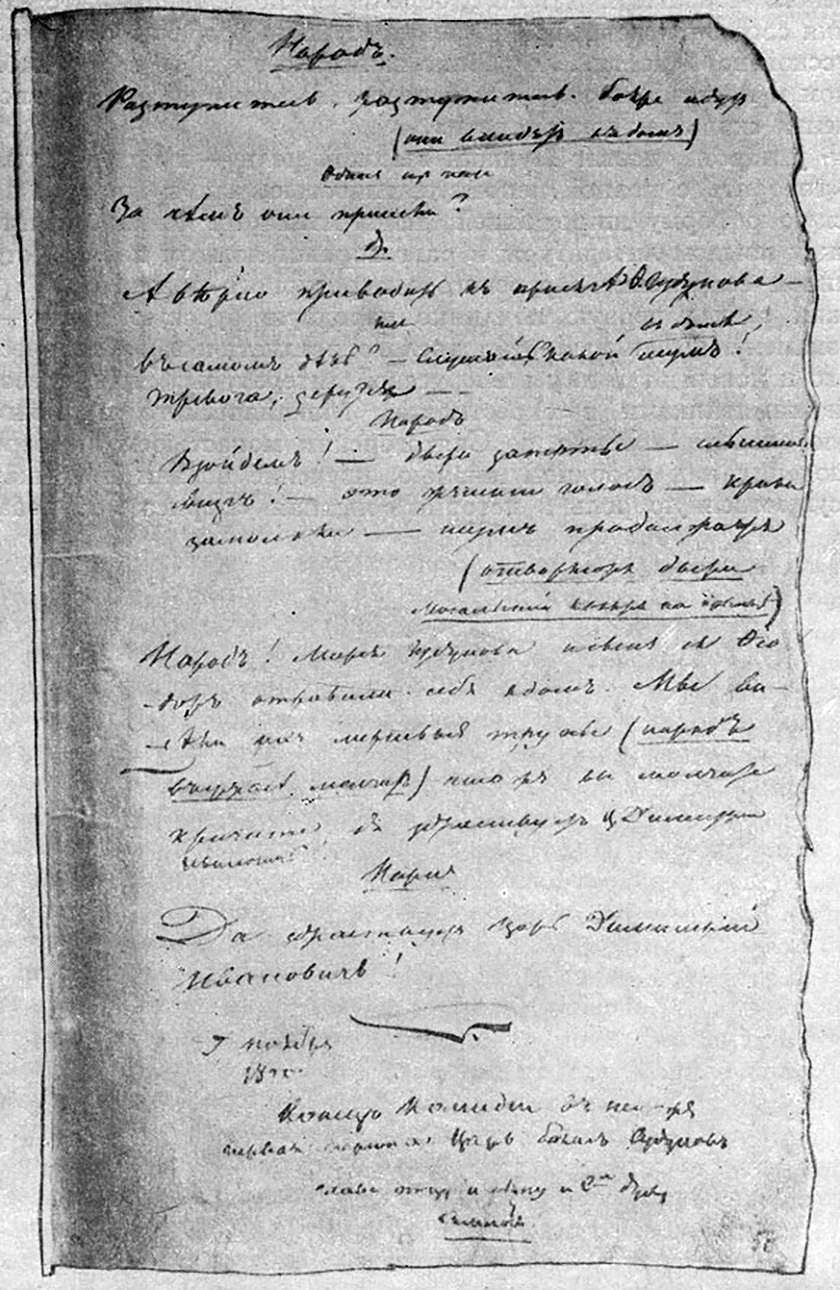 Народъ.
Разступитесь, разступитесь. бояре идут
(они входятъ въ домъ)
Одинъ из нар
За чѣмъ они пришли?
др.
А вѣрно приводить къ присягѣ Ѳ. Годунова —
въ самомъ дѣлѣ? — Слушай какой въ домѣ шумъ!
тревога, дерутся — —
Народъ
Взойдемъ! — двери заперты — слышишь
визгъ! — это женски голосъ — крики
замолкли — шумъ продолжается
(отворяются двери
Мосальский на крыльцѣ)
Народъ! Марья Годунова и сынъ ея Ѳео
-доръ отравили себя ядомъ. Мы ви-
-дѣли ихъ мертвые трупы (народъ
въ ужасѣ молчит) что жъ вы молчите
кричите, да здравствуетъ Ц Димитрий
Ивановичъ
Народ
Да здравствуетъ Царь Димитрий
Ивановичъ!
7 ноября
1825
Конецъ Комидии въ ней-же
первая персона Царь Борисъ Годуновъ
слава отцу и сыну и С-му духу
аминь.